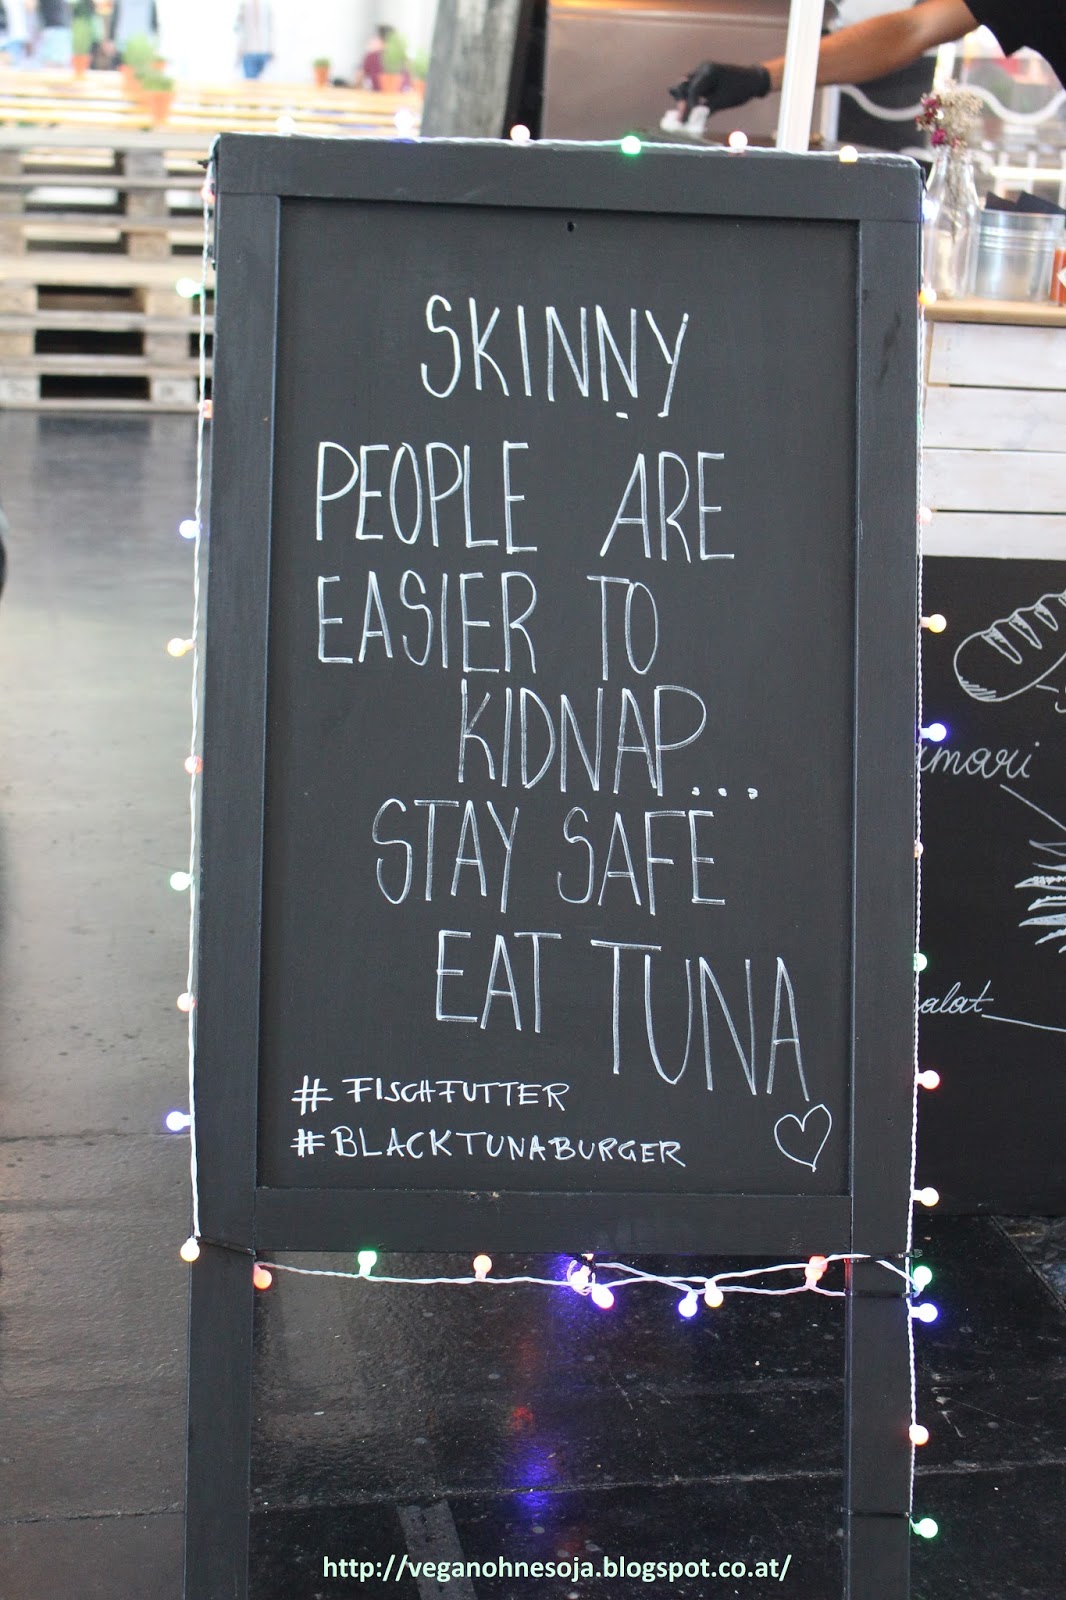 SKINNY
PEOPLE ARE
EASIER TO
KIDNAP...
STAY SAFE
EAT TUNA
# FISCHFUTTER
#BLACKTUNABURGER
amari
alat
http://veganohnesoja.blogspot.co.at/